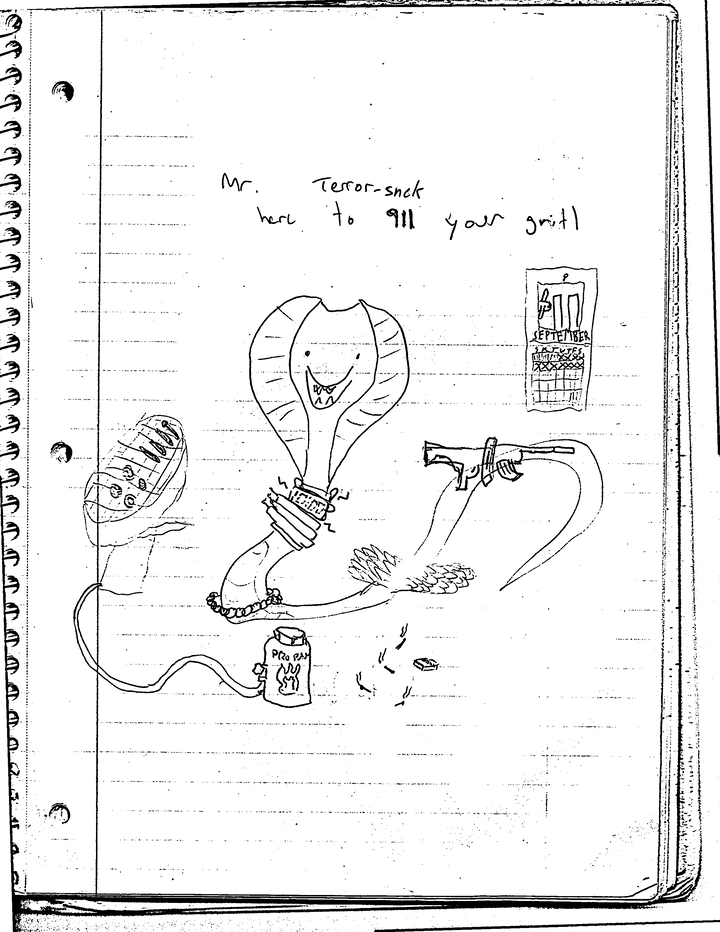 Mr. Terror-snek
here to 911 your grill
11
SEPTEMBER
PRO PAN